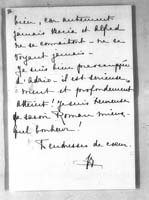 bien, car autrement
jamais Maria et Alfred
ne se connaitront - ne se
voyant jamais -
Je suis bien préoccupée
d'Adrio - il est sérieuse-
ment et profondément
atteint! Je suis heureuse
de savoir Roman mieux
quel bonheur!
Tendresses de cœur.